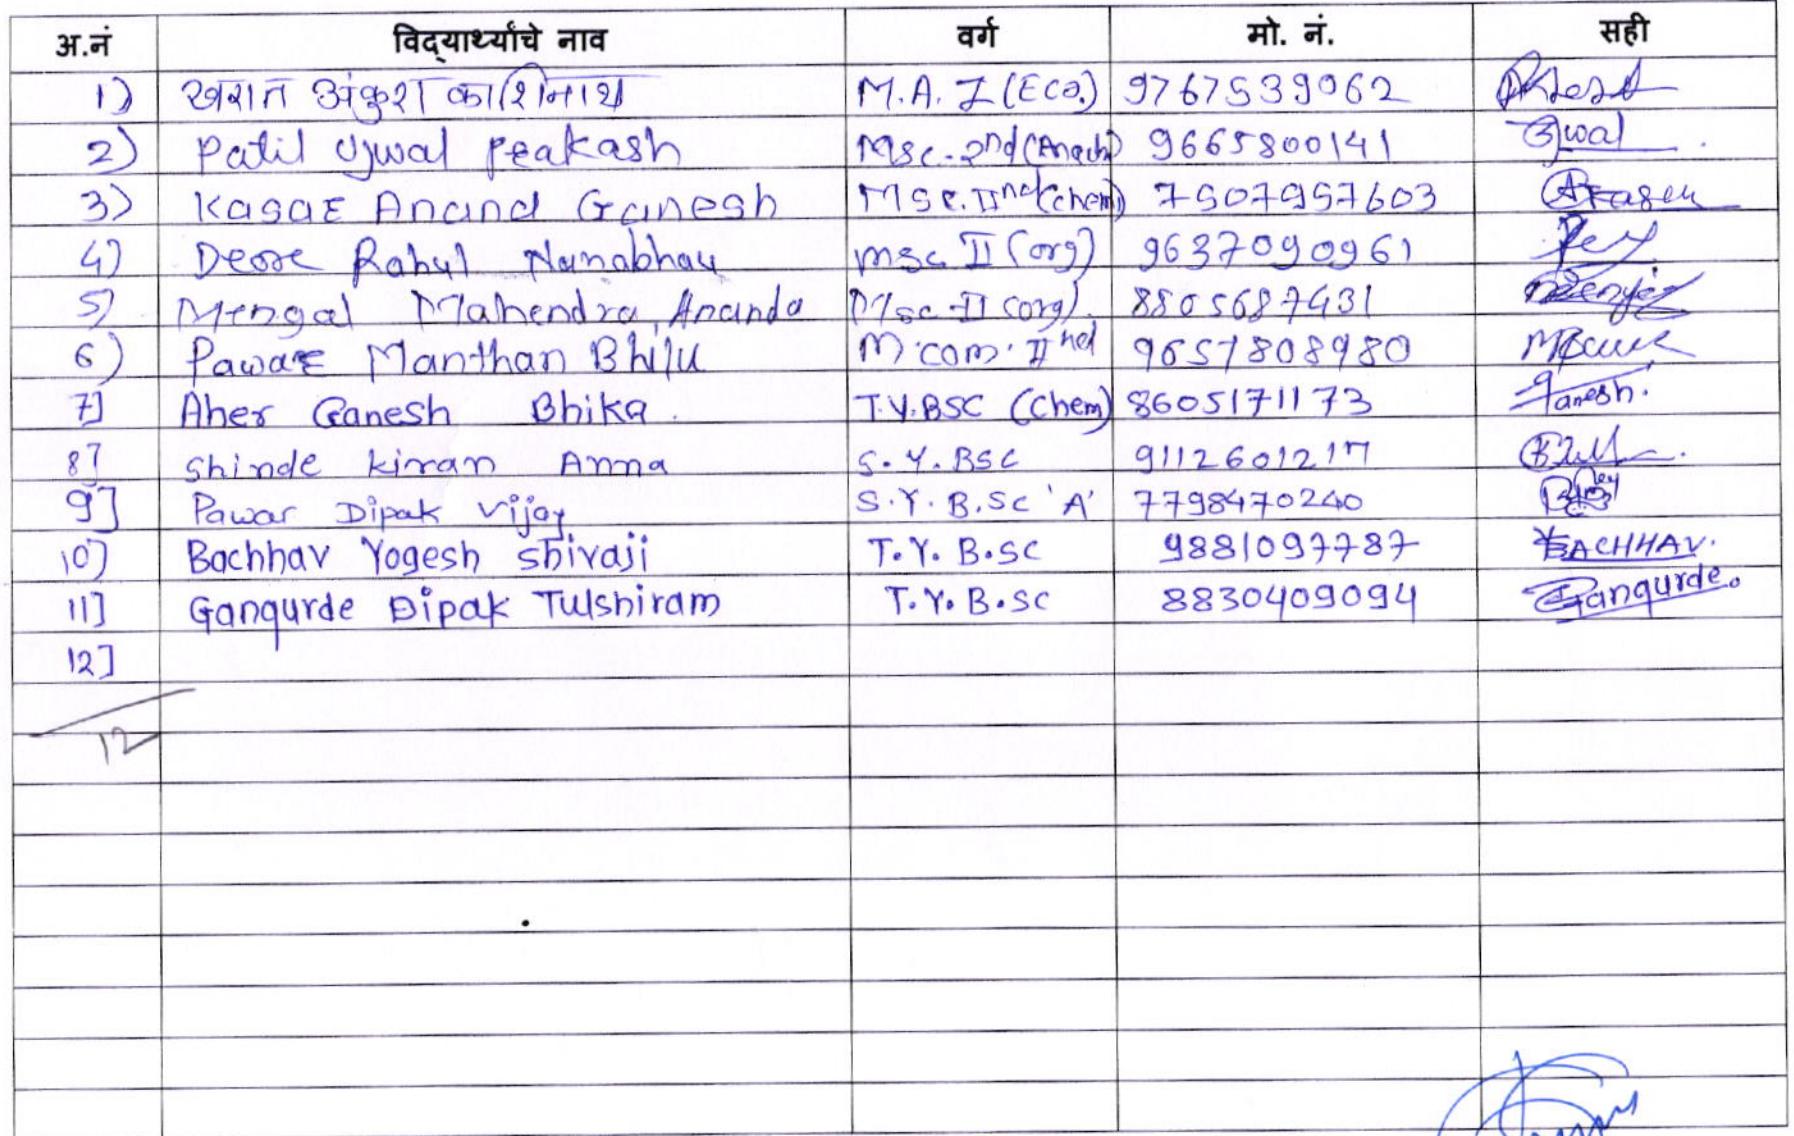 अ.नं विद्यार्थ्यांचे नाव वर्ग मो. नं. सही
1) खरात अंकुश काशिनाथ M.A. I (Eco.) 9767539062
2) Patil Ujwal Prakash Msc. 2nd 9665800141 Ujwal
3) Kasar Anand Ganesh MSc. IInd (chem) 7507957603
4) Deore Rahul Nanabhau msc II (org) 9637090961
5) Mengal Mahendra Ananda Msc-II (org). 8805687431
6) Pawar Manthan Bhilu M.com. IInd 9657808980
7] Aher Ganesh Bhika. T.Y.BSC (Chem) 8605171173 Ganesh.
8] Shinde kiran Anna S.Y.BSC 9112601217
9] Pawar Dipak Vijay S.Y.B.Sc 'A' 7798470240
10] Bachhav Yogesh Shivaji T.Y.B.SC 9881097787 BACHHAV.
11] Gangurde Dipak Tulshiram T.Y.B.SC 8830409094 Gangurde.
12]
12